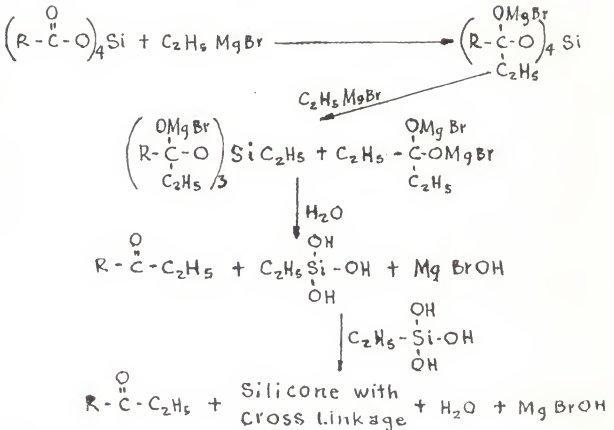 (R-C(=O)-O)₄Si + C₂H₅MgBr → (R-C(OMgBr)(C₂H₅)-O)₄Si
C₂H₅MgBr
(R-C(OMgBr)(C₂H₅)-O)₃SiC₂H₅ + C₂H₅-C(OMgBr)(C₂H₅)OMgBr
H₂O
R-C(=O)-C₂H₅ + C₂H₅Si(OH)(OH)-OH + MgBrOH
C₂H₅-Si(OH)(OH)-OH
R-C(=O)-C₂H₅ + Silicone with cross linkage + H₂O + MgBrOH